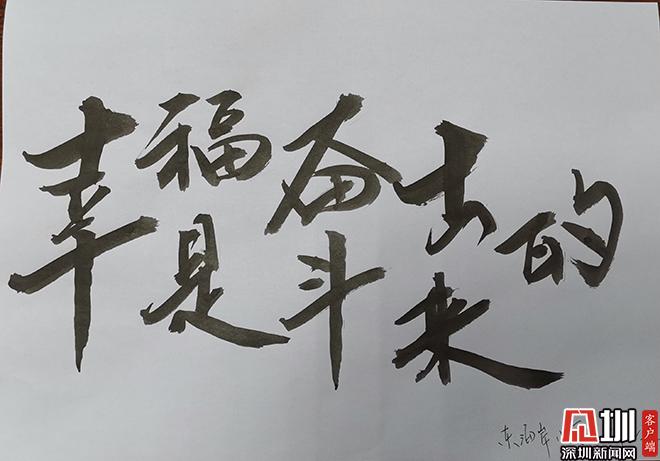 幸福是奋斗出来的
东海岸
圳
深圳新闻网
客户端